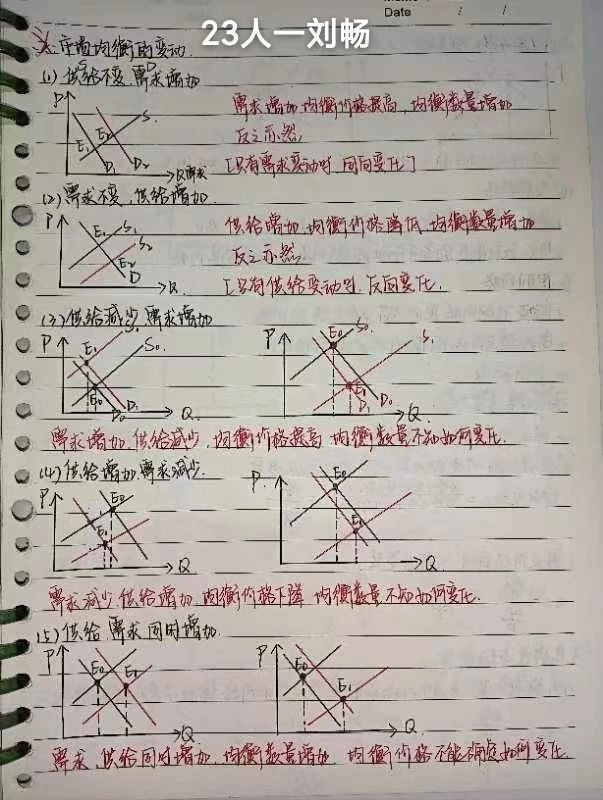 Date / /
23人一刘畅
市场均衡的变动
(1) 供给不变,需求增加
P
S.
E2
E1
D1 D2
Q
需求增加,均衡价格提高,均衡数量增加
反之亦然,
[只有需求变动时,同向变化]
(2) 需求不变,供给增加.
P
E1 S1
S2
E2
D
Q.
供给增加,均衡价格降低,均衡数量增加
反之亦然.
[只有供给变动时,反向变化.
(3) 供给减少,需求增加
P S1
E1 S0
E0
D0 D1 Q.
P E0 S0 S1
E1
D1 D0 Q
需求增加,供给减少,均衡价格提高,均衡数量不知如何变化.
(4) 供给增加,需求减少.
P E0
E1
Q
P. E0
E1
Q
需求减少,供给增加,均衡价格下降,均衡数量不知如何变化.
(5) 供给 需求同时增加.
P E0 E1
Q
P E0
E1
Q.
需求,供给同时增加,均衡数量增加,均衡价格不能确定如何变化